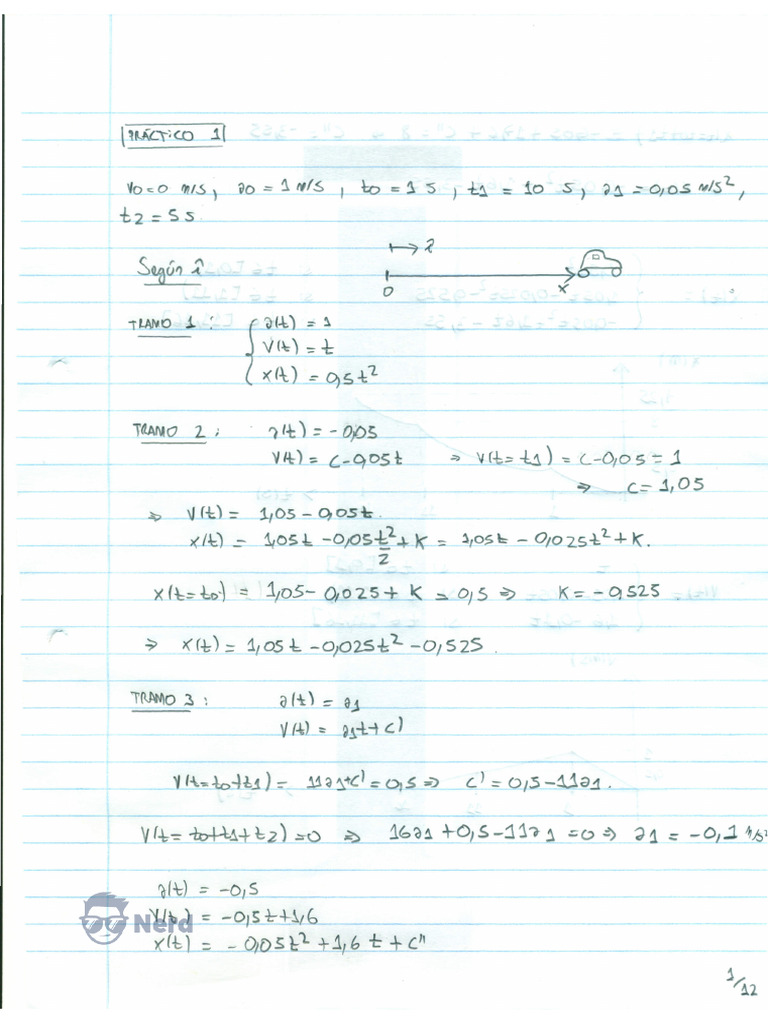 PRÁCTICO 1
v0=0 m/s, a0=1 m/s, t0=1 s, t1=10 s, a1=0,05 m/s²,
t2=5s.
Según î
î
0 x
TRAMO 1: a(t)=1
V(t)=t
x(t)=0,5t²
TRAMO 2: a(t)=-0,05
V(t)=C-0,05t ⇒ V(t=t1)=C-0,05=1
⇒ C=1,05
⇒ V(t)=1,05-0,05t.
x(t)=1,05t-0,05t²/2+K=1,05t-0,025t²+K.
x(t=t0)=1,05-0,025+K=0,5⇒ K=-0,525
⇒ x(t)=1,05t-0,025t²-0,525.
TRAMO 3: a(t)=a1
V(t)=a1t+C'
V(t=t0+t1)=11a1+C'=0,5⇒ C'=0,5-11a1.
V(t=t0+t1+t2)=0 ⇒ 16a1+0,5-11a1=0⇒ a1=-0,1 m/s²
a(t)=-0,5
V(t)=-0,5t+1,6
Nerd
x(t)=-0,05t²+1,6t+C"
1/12